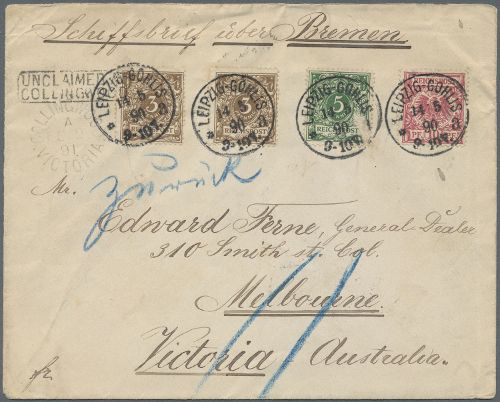 Schiffsbrief über Bremen
UNCLAIMED
COLLINGW
LEIPZIG-GOHLIS
14 5
90
9-10V.
3
LEIPZIG-GOHLIS
14 5
90
9-10V.
3
REICHSPOST
LEIPZIG-GOHLIS
14 5
90 a
9-10V.
5
REICHSPOST
LEIPZIG-GOHLIS
14 5
90 a
9-10V.
COLLINGW
A
91
VICTORIA
zurück
Mr.
Edward Ferne, General-Dealer
310 Smith st. Col.
Melbourne.
Victoria / Australia.
fr